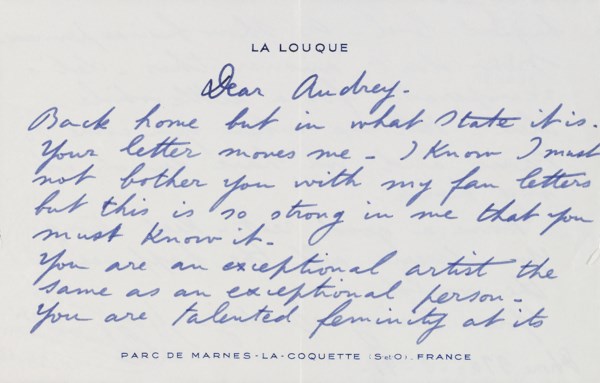 LA LOUQUE
Dear Audrey.
Back home but in what state it is.
Your letter moves me - I know I must
not bother you with my fan letters
but this is so strong in me that you
must know it.
You are an exceptional artist the
same as an exceptional person.
You are talented feminity at its
PARC DE MARNES-LA-COQUETTE (S et O). FRANCE